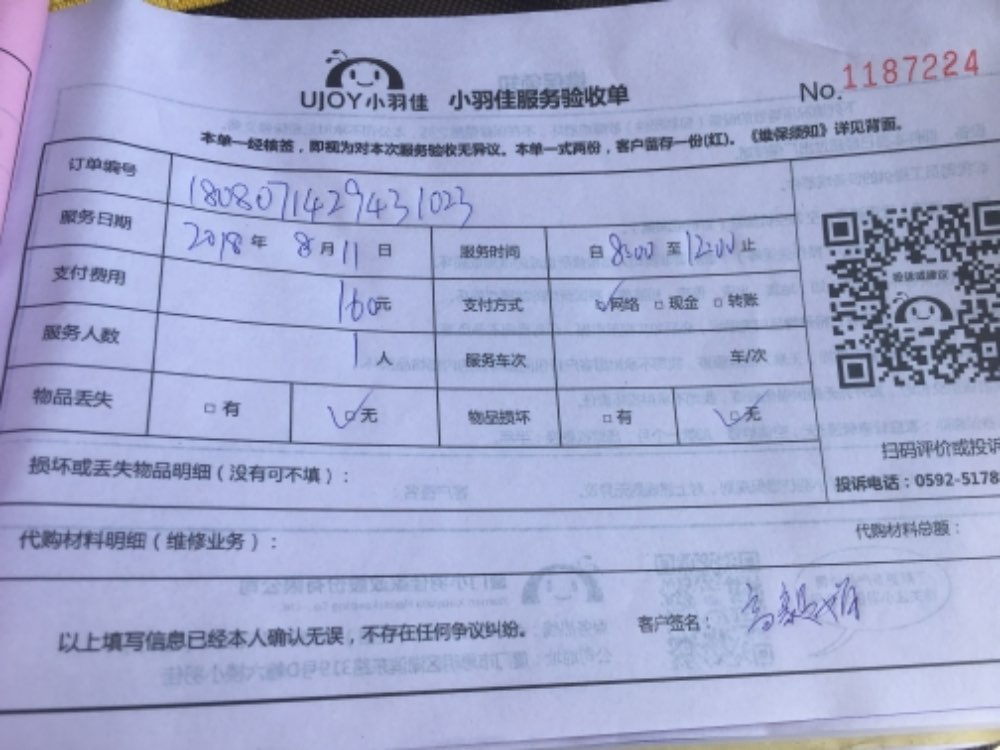 UJOY小羽佳 小羽佳服务验收单 No. 1187224
本单一经核签，即视为对本次服务验收无异议。本单一式两份，客户留存一份(红)。《维保须知》详见背面。
订单编号 18080714294431023
服务日期 2018年 8月11日 服务时间 自8:00至12:00止
支付费用 160元 支付方式 ☑网络 □现金 □转账
服务人数 1人 服务车次 车/次
物品丢失 □有 ☑无 物品损坏 □有 ☑无
验话或建议
扫码评价或投诉
投诉电话：0592-5178
损坏或丢失物品明细（没有可不填）：
代购材料明细（维修业务）： 代购材料总额：
以上填写信息已经本人确认无误，不存在任何争议纠纷。 客户签名：